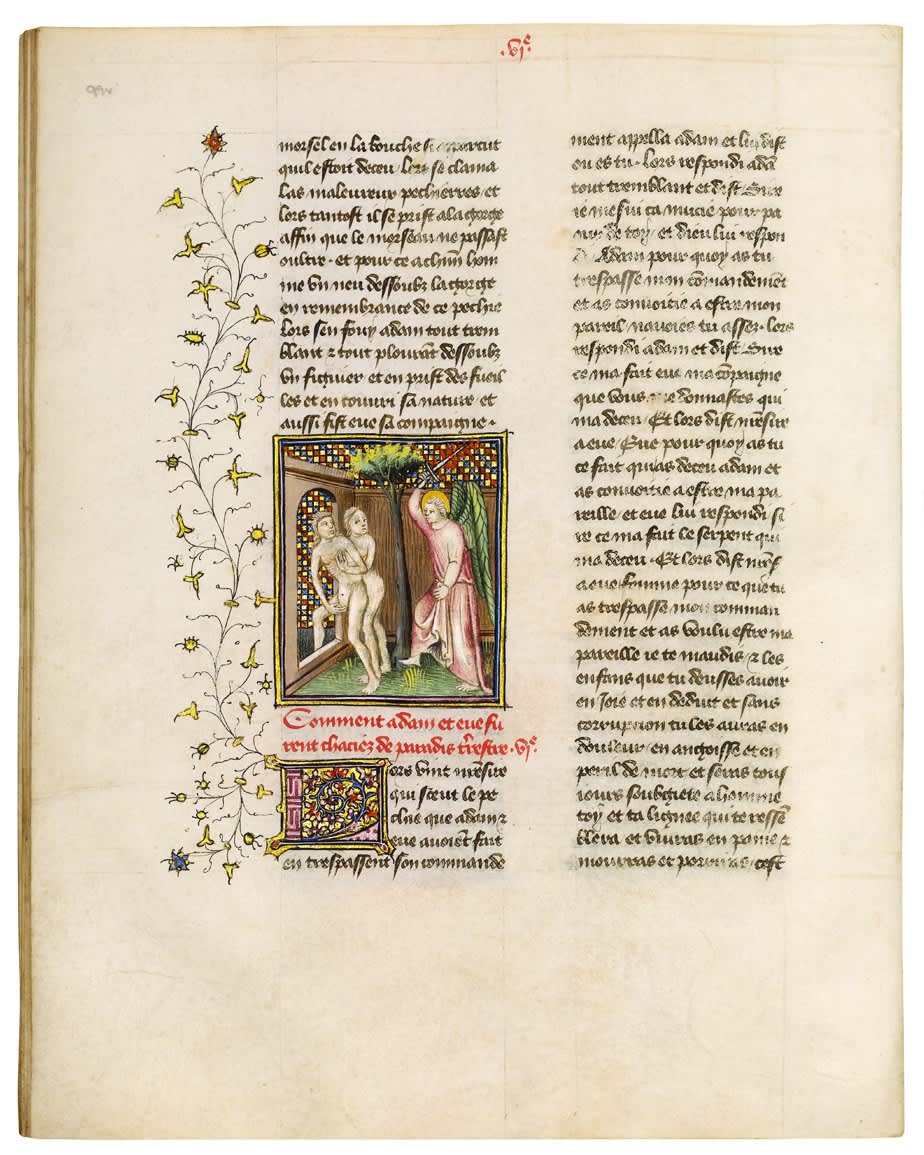 .vie.
99v
morsel en la bouche si aparcut
quil estoit deceu lors se clama
Las maleureux pechierres et
lors tantost il se prist a la gorge
affin que le morseau ne passast
oultre . et pour ce a chūn hom
me vn neu dessoubz la gorge
en remembrance de ce pechie
Lors sen fouy adam tout trem
blant ⁊ tout plourāt dessoubz
vn figuier et en prist des fueil
les et en couuri sa nature et
aussi fist eue sa compaigne .
Comment adam et eue fu
rent chaciez de paradis tr̄restre . vie.
Lors vint nr̄e sire
qui sceut le pe
chie que adam ⁊
eue auoient fait
en trespassent son commande
ment appella adam et lui dist
ou es tu . Lors respondi adā
tout tremblant et dist Sire
ie me sui ca mucie pour pa
our de toy / et dieu lui respon
di Adam pour quoy as tu
trespasse mon cōmandemēt
et as conuoitie a estre mon
pareil / nauoies tu assez . Lors
respondi adam et dist Sire
ce ma fait eue ma cōpaigne
que vous me donnastes qui
ma deceu / Et lors dist nr̄e sire
a eue / Eue pour quoy as tu
ce fait qui as deceu adam et
as conuoitie a estre ma pa
reille / et eue lui respondi si
re ce ma fait le serpent qui
ma deceu . Et lors dist nr̄e s̄
a eue femme pour ce que tu
as trespasse mon comman
dement et as voulu estre ma
pareille ie te maudis / ⁊ les
enfans que tu deusses auoir
en Joie et en deduit et sans
corrupcion tu les auras en
douleur / en angoisse et en
peril de mort et seras tous
iours soubgiete a homme
toy et ta lignee qui te ressē
blera et viuras en paine ⁊
mourras et pourriras / cest